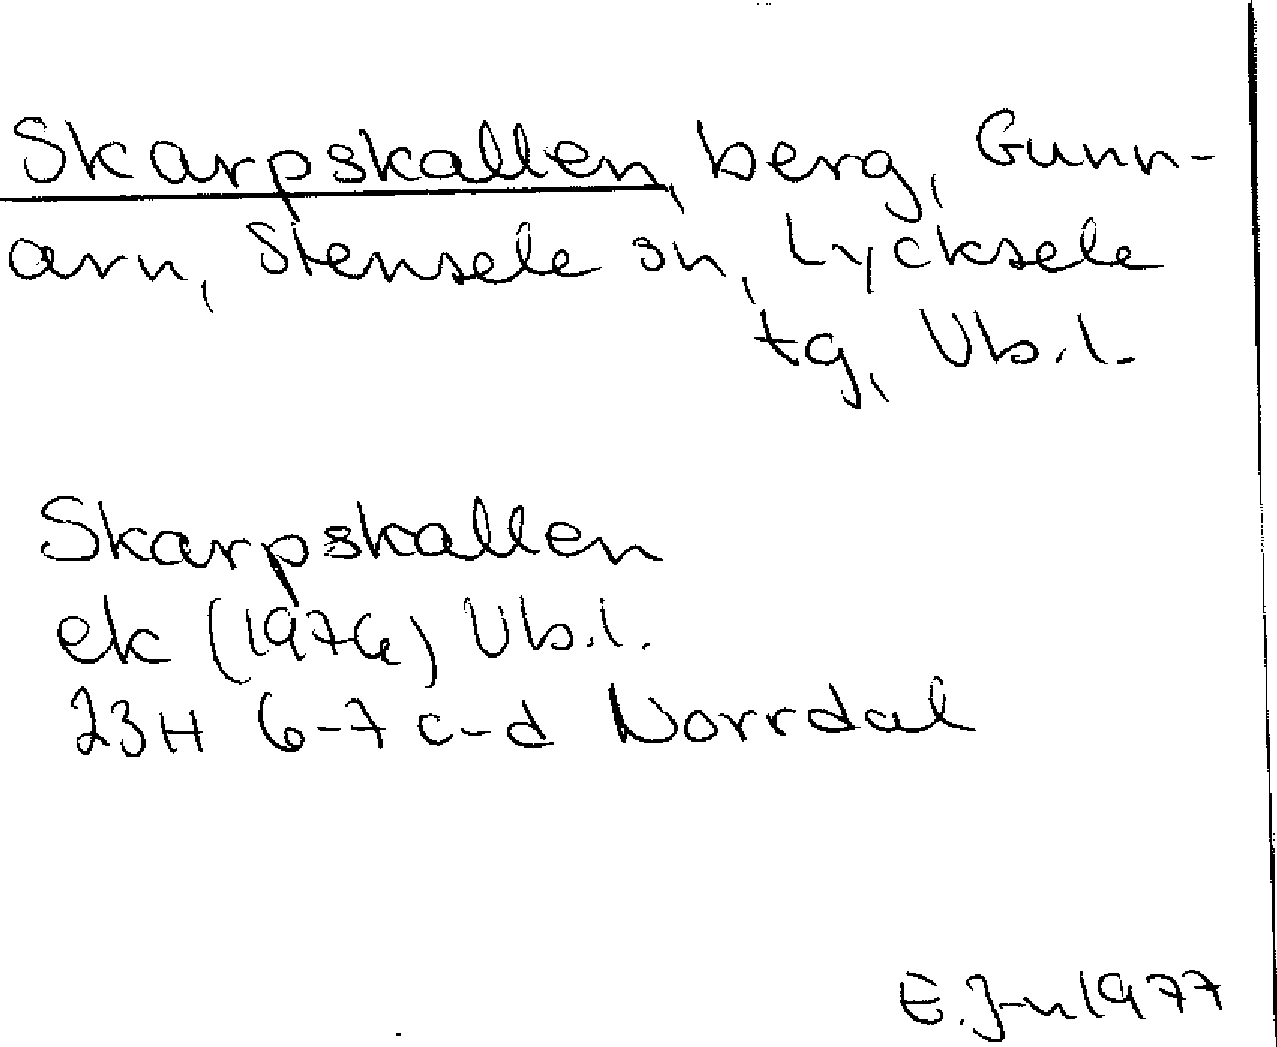 Skarpskallen, berg, Gunn-
arn, Stensele sn, Lycksele
tg, Vb.l.
Skarpskallen
ek (1976) Vb.l.
23H 6-7 c-d Norrdal
E. J-n 1977